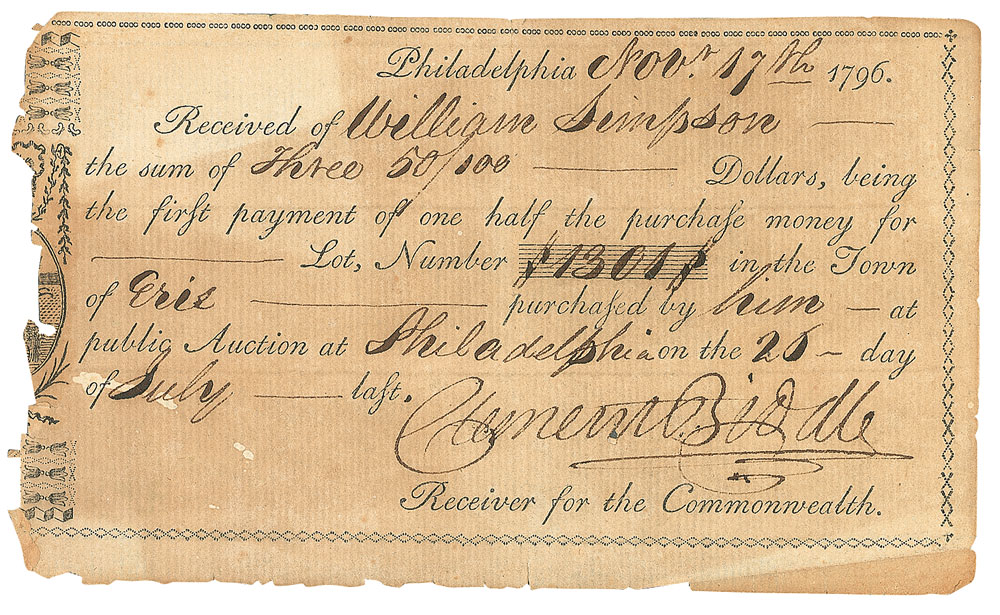 Philadelphia Nov.r 17th 1796.
Received of William Simpson
the sum of Three 50/100 Dollars, being
the firſt payment of one half the purchaſe money for
Lot, Number 1301 in the Town
of Erie purchaſed by him — at
public Auction at Philadelphia on the 26 — day
of July laſt.
Clement Biddle
Receiver for the Commonwealth.